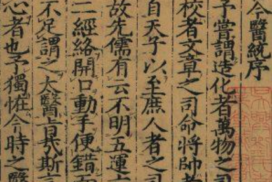 今醫統序
予嘗謂造化者萬物之司
校者文章之司命將帥者
自天子以至庶人者之司
故先儒有云不明五運六
二經絡開口動手便錯
不足謂之大醫
心者也予獨恠今時之醫